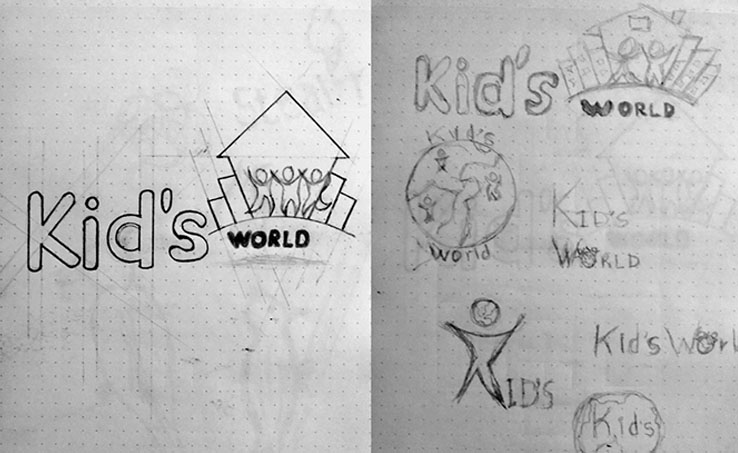 Kid's
WORLD
Kid's
WORLD
Kid's
World
KID'S
WORLD
KID'S
Kid's Worl
Kid's